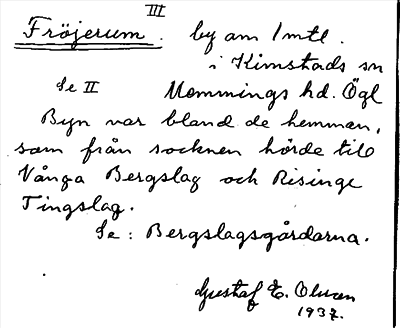 III
Fröjerum. by am 1 mtl.
i Kimstads sn
Se II Memmings hd. Ögl
Byn var bland de hemman,
som från socknen hörde till
Vånga Bergslag och Risinge
Tingslag.
Se: Bergslagsgårdarna.
Gustaf E. Olsson
1937.